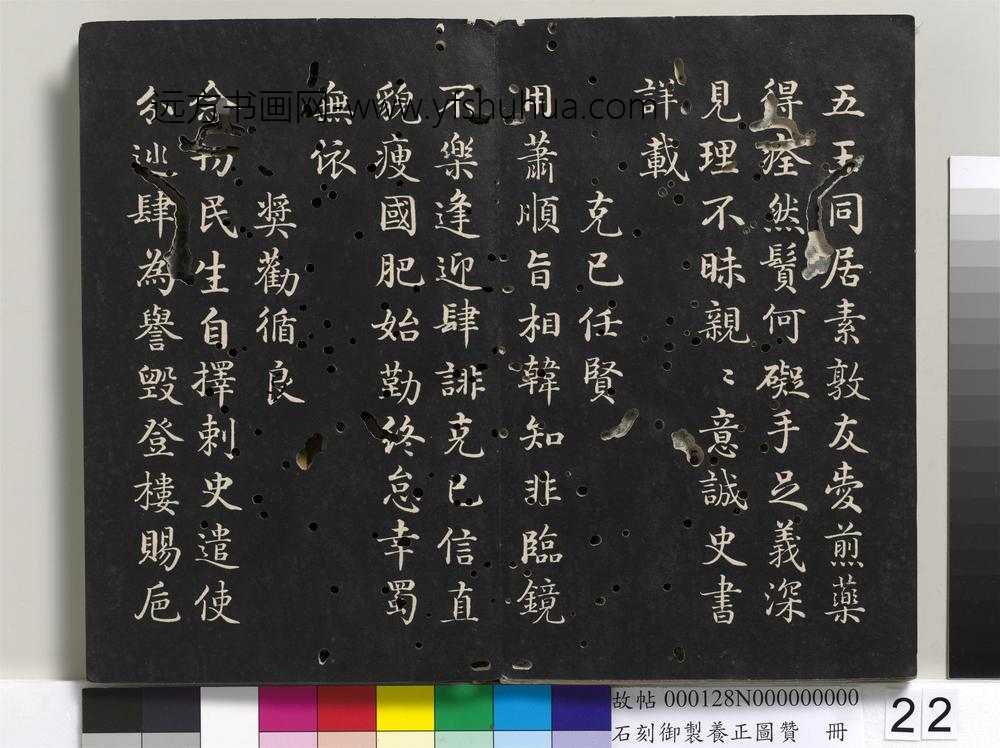 五王同居素敦友愛煎藥
得痊然鬢何礙手足義深
見理不昧親〻意誠史書
詳載
克己任賢
用蕭順旨相韓知非臨鏡
不樂逢迎肆誹克己信直
貌瘦國肥始勤終怠幸蜀
無依
奬勸循良
民生自擇刺史遣使
分巡肆為譽毀登樓賜巵
远方书画网-www.yfshuhua.com
故帖 000128N000000000
石刻御製養正圖贊 冊
22